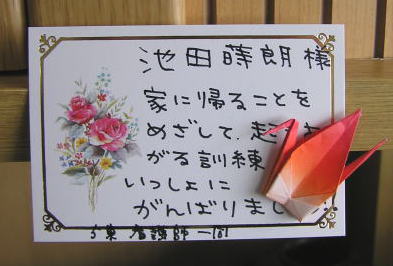 池田蒔朗様
家に帰ることを
めざして、起き上
がる訓練
いっしょに
がんばりまし
5東 看護師一同